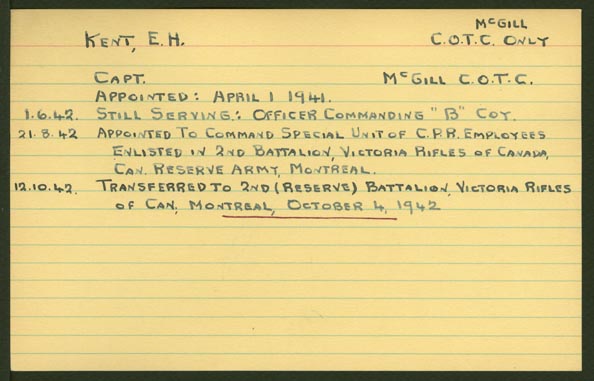 McGILL
KENT, E.H. C.O.T.C. ONLY
CAPT. McGILL C.O.T.C.
APPOINTED: APRIL 1 1941.
1.6.42. STILL SERVING: OFFICER COMMANDING "B" COY.
21.8.42 APPOINTED TO COMMAND SPECIAL UNIT OF C.P.R. EMPLOYEES
ENLISTED IN 2ND BATTALION, VICTORIA RIFLES OF CANADA,
CAN. RESERVE ARMY, MONTREAL.
12.10.42. TRANSFERRED TO 2ND (RESERVE) BATTALION, VICTORIA RIFLES
OF CAN, MONTREAL, OCTOBER 4, 1942